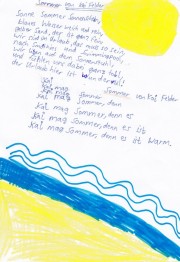 Sommer von Kai Felder
Sonne Sommer Sonnenschein
blaues Wasser weit und
gelber Sand, der ist gut fein
Wir sind im Urlaub, das muss so sein
nach
wir liegen auf dem Sonnenstuhl
und fühlen uns dabei ganz toll,
der Urlaub hier ist wundervoll
Sommer von Kai Felder
Kai
Kai mag
Kai mag Sommer
Kai mag Sommer, denn
Kai mag Sommer, denn es
Kai mag Sommer, denn es ist
Kai mag Sommer, denn es ist warm